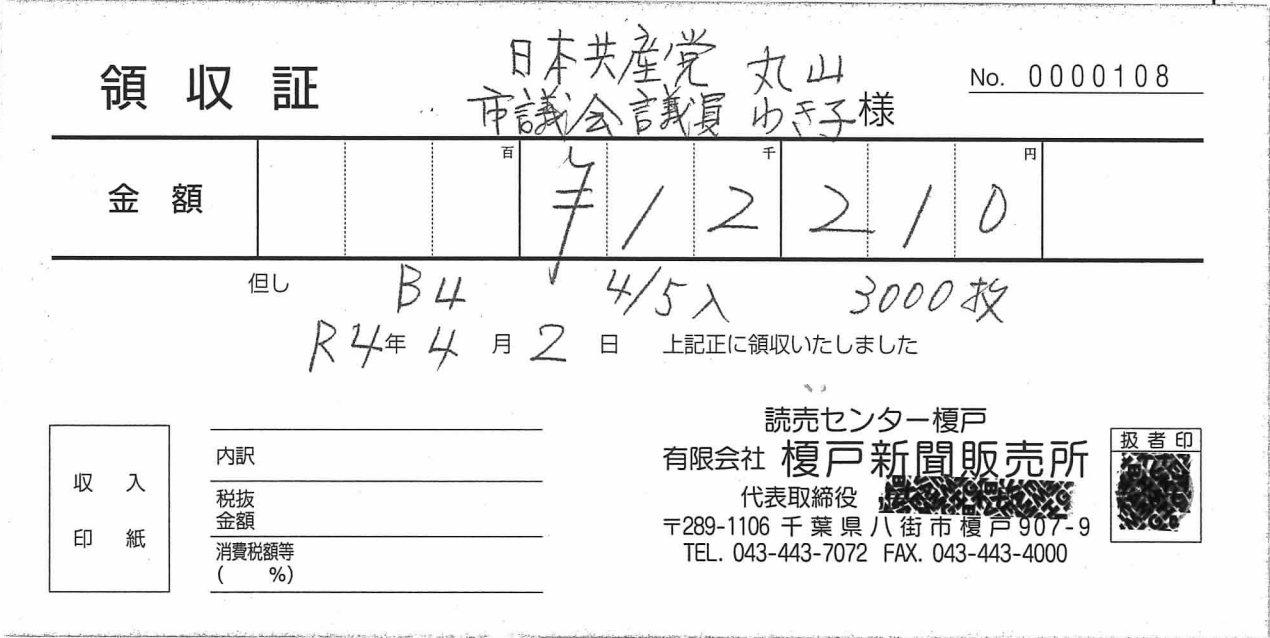 領収証
日本共産党 丸山
市議会議員 ゆき子様
No. 0000108
金額 百 千 円
¥12210
但し B4 4/5入 3000枚
R4年4月2日 上記正に領収いたしました
収入
印紙
内訳
税抜
金額
消費税額等
( %)
読売センター榎戸
有限会社 榎戸新聞販売所
代表取締役
〒289-1106 千葉県八街市榎戸907-9
TEL. 043-443-7072 FAX. 043-443-4000
扱者印